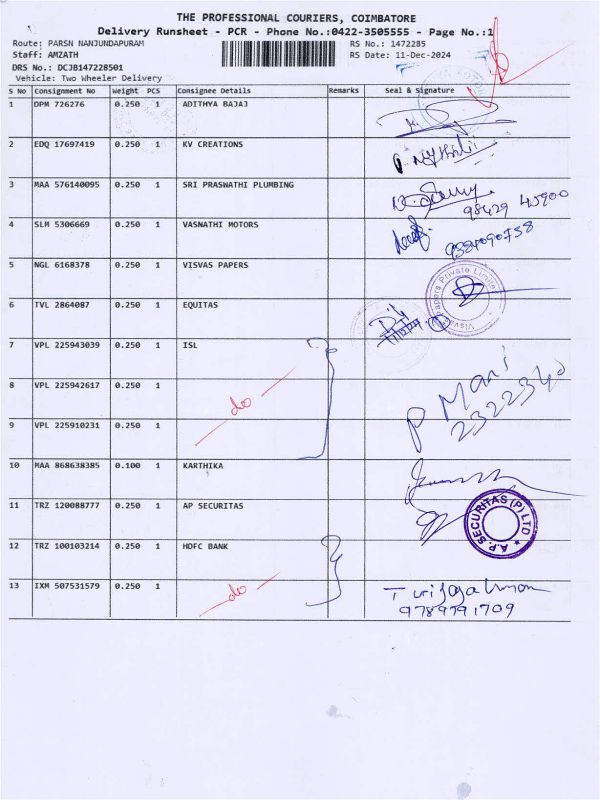 THE PROFESSIONAL COURIERS, COIMBATORE
Delivery Runsheet - PCR - Phone No.:0422-3505555 - Page No.:1
Route: PARSN NANJUNDAPURAM RS No.: 1472285
Staff: AMZATH RS Date: 11-Dec-2024
DRS No.: DCJB147228501
Vehicle: Two Wheeler Delivery
S No Consignment No Weight PCS Consignee Details Remarks Seal & Signature
1 DPM 726276 0.250 1 ADITHYA BAJAJ
2 EDQ 17697419 0.250 1 KV CREATIONS
3 MAA 576140095 0.250 1 SRI PRASWATHI PLUMBING
98429 45900
4 SLM 5306669 0.250 1 VASNATHI MOTORS
5 NGL 6168378 0.250 1 VISVAS PAPERS
Papers Private Limited
6 TVL 2864087 0.250 1 EQUITAS
7 VPL 225943039 0.250 1 ISL
8 VPL 225942617 0.250 1
do
P Mani
2322340
9 VPL 225910231 0.250 1
10 MAA 868638385 0.100 1 KARTHIKA
11 TRZ 120088777 0.250 1 AP SECURITAS
A.P. SECURITAS (P) LTD
12 TRZ 100103214 0.250 1 HDFC BANK
13 IXM 507531579 0.250 1
do
9789791709